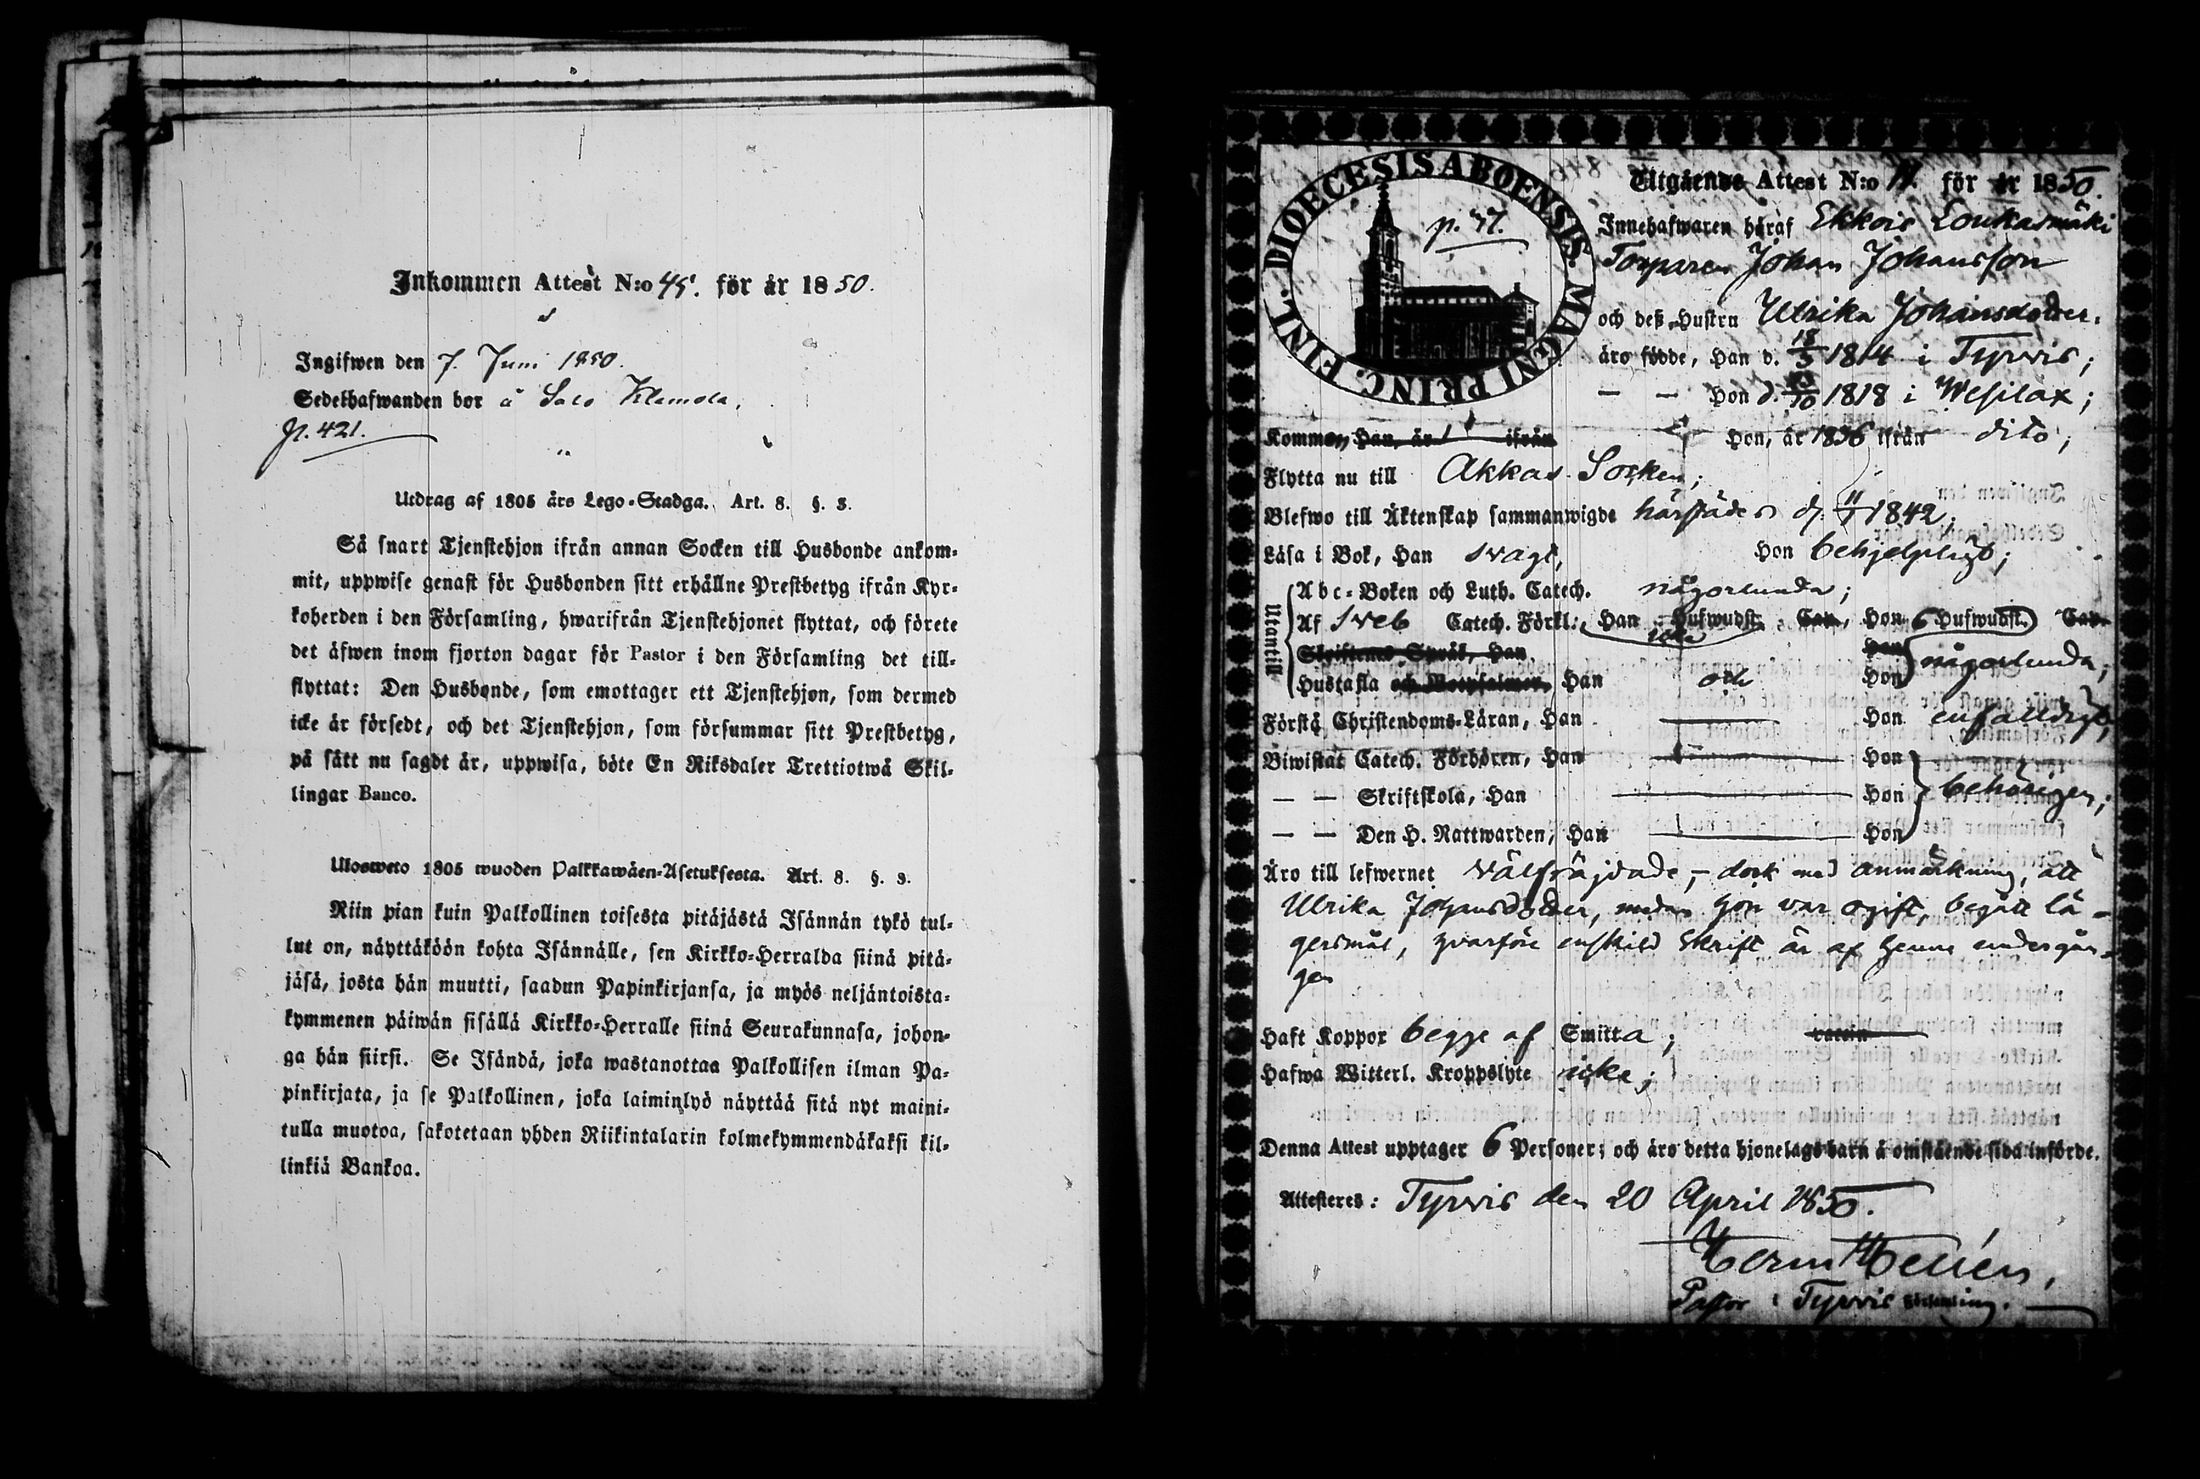 Inkommen Attest N:o 45. för år 1850.
Ingifwen den 7. Juni 1850.
Sedelhafwanden bor å Salo Klemola,
p. 421.
Utdrag af 1805 års Lego-Stadga. Art. 8. §. 3.
Så snart Tjenstehjon ifrån annan Socken till Husbonde ankom-
mit, uppwise genast för Husbonden sitt erhållne Prestbetyg ifrån Kyr-
koherden i den Församling, hwarifrån Tjenstehjonet flyttat, och förete
det äfwen inom fjorton dagar för Pastor i den Församling det till-
flyttat: Den Husbonde, som emottager ett Tjenstehjon, som dermed
icke är försedt, och det Tjenstehjon, som försummar sitt Prestbetyg,
på sätt nu sagdt är, uppwisa, böte En Riksdaler Trettiotwå Skil-
lingar Banco.
Ulosweto 1805 wuoden Palkkawäen-Asetuksesta. Art. 8. §. 3.
Niin pian kuin Palkollinen toisesta pitäjästä Isännän tykö tul-
lut on, näyttäköön kohta Isännälle, sen Kirkko-Herralda siinä pitä-
jäsä, josta hän muutti, saadun Papinkirjansa, ja myös neljäntoista-
kymmenen päiwän sisällä Kirkko-Herralle siinä Seurakunnasa, johon-
ga hän siirsi. Se Isändä, joka wastanottaa Palkollisen ilman Pa-
pinkirjata, ja se Palkollinen, joka laiminlyö näyttää sitä nyt maini-
tulla muotoa, sakotetaan yhden Riikintalarin kolmekymmendäkaksi kil-
linkiä Bankoa.
DIOECESIS ABOENSIS. MAGNI PRINC. FINL.
p. 37.
Utgående Attest N:o 11. för år 1850.
Innehafwaren häraf Ekkois Loukasmäki
Torparen Johan Johansson
och deß Hustru Ulrika Johansdotter.
äro födde, Han d. 18/3 1814 i Tyrvis;
— — Hon d. 13/10 1818 i Wesilax;
Kommo, Han, år 1 ifrån Hon, år 1836 ifrån dito;
Flytta nu till Akkas Socken;
Blefwo till Äktenskap sammanwigde härstädes d. 11/1 1842.
Läsa i Bok, Han svagt, Hon behjelpligt;
Utantill
Abc-Boken och Luth. Catech. någorlunda;
Af Sveb Catech. Förkl.: Han Hufwudst. Cap., Hon 6 Hufwudst. Cap.
icke
Skriftenes Språk, Han Hon
Hustafla och Botpsalmer, Han och Hon någorlunda;
Förstå Christendoms-Läran, Han — Hon enfalldigt;
Biwistat Catech. Förhören, Han — Hon
— — Skriftskola, Han — Hon behörigen;
— — Den H. Nattwarden, Han — Hon
Äro till lefwernet välfrägdade, — dock med anmärkning, att
Ulrika Johansdotter, medan hon var ogift, begått lä-
gersmål, hvarföre enskild skrift är af henne undergån-
gen
Haft Koppor begge af Smitta; vaccin
Hafwa Witterl. Kroppslyte icke;
Denna Attest upptager 6 Personer; och äro detta hjonelags barn å omstående sida införde.
Attesteres: Tyrvis den 20 April 1850.
Herm Hellén,
Pastor i Tyrvis Församling.